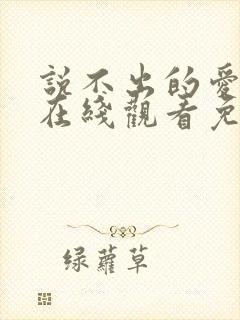 説不出的愛
在綫觀看免
绿蘿草